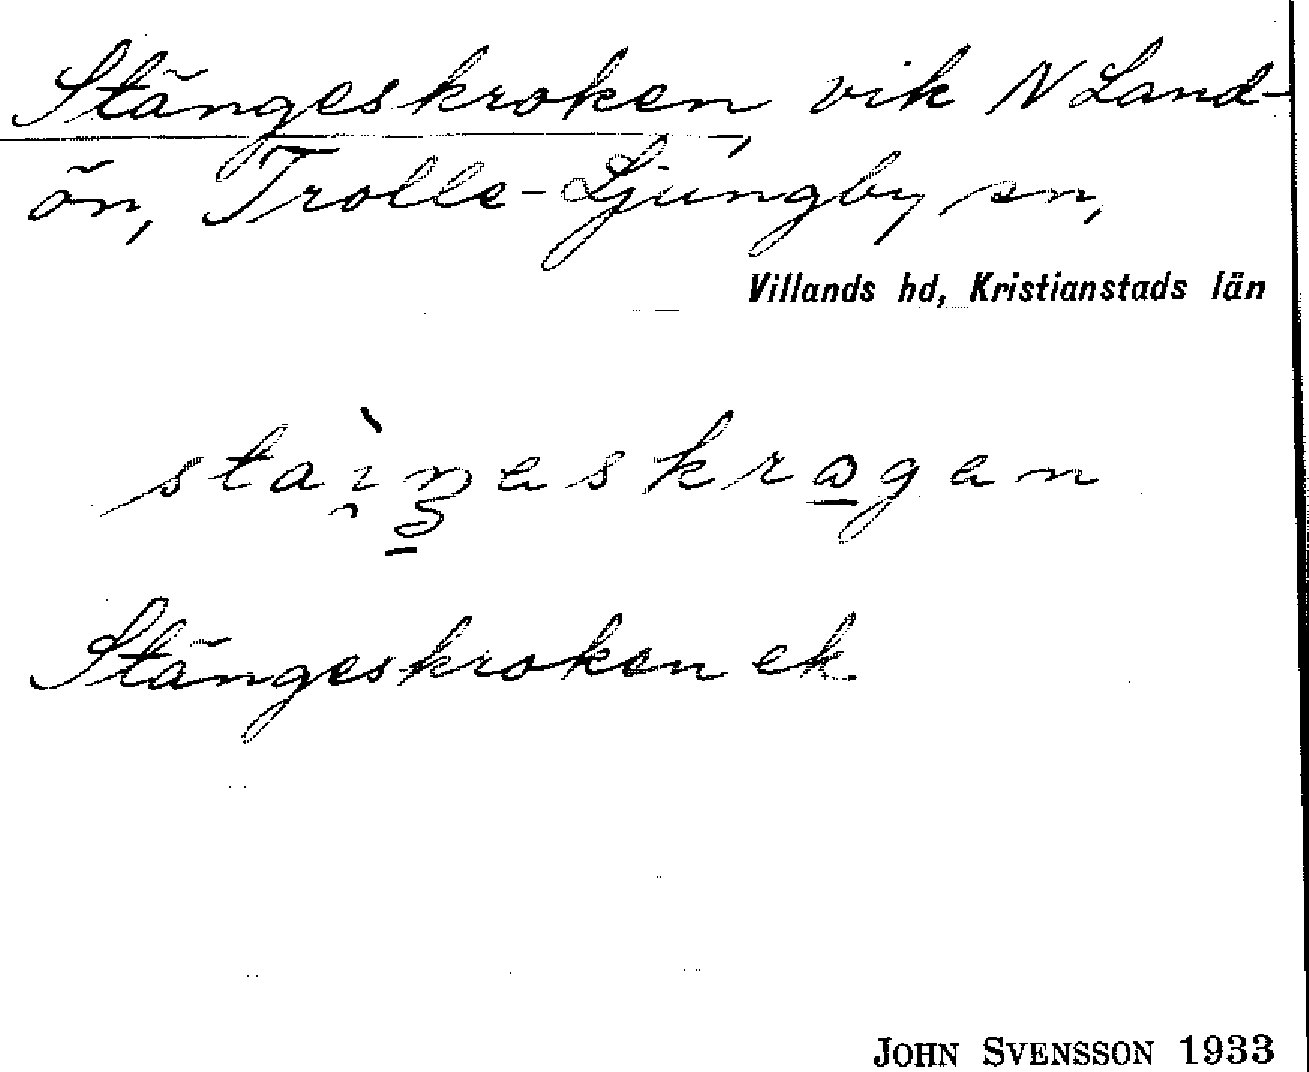 Stängeskroken, vik N Land-
ön, Trolle-Ljungby sn,
Villands hd, Kristianstads län
Stängeskroken ek.
JOHN SVENSSON 1933